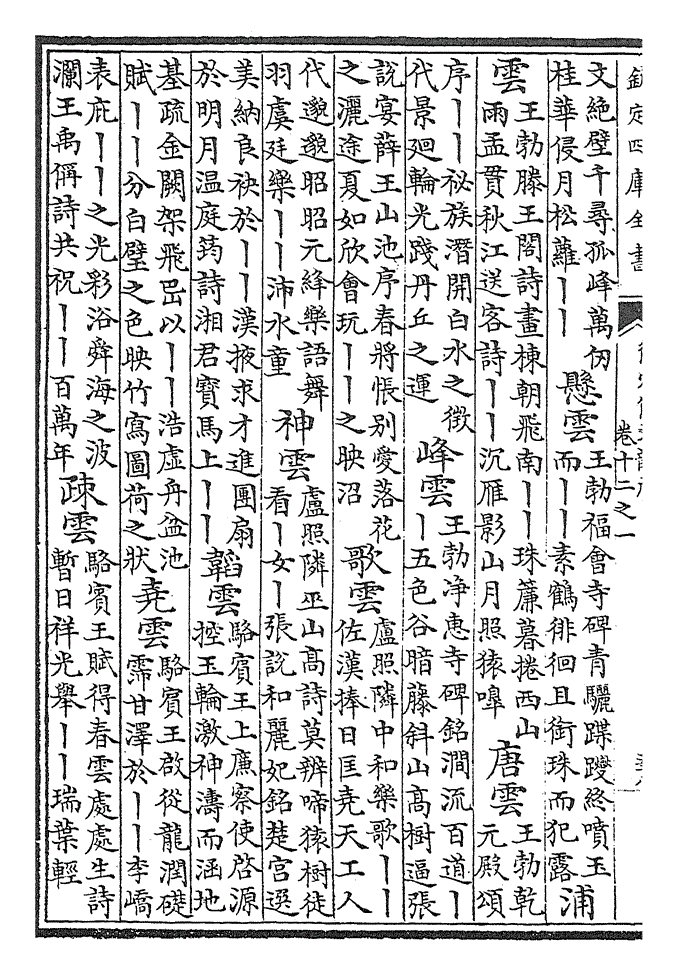 欽定四庫全書
卷十二之一
文絶壁千尋孤峰萬仞
桂華侵月松蘿丨丨
懸雲
王勃福會寺碑青驪蹀躞終噴玉
而丨丨素鶴徘徊且銜珠而犯露
浦
雲
王勃滕王閣詩畫棟朝飛南丨丨珠簾暮捲西山
雨孟貫秋江送客詩丨丨沉雁影山月照猿嘷
唐雲
王勃乾
元殿頌
序丨丨祕族潛開白水之徵
代景廻輪光踐丹丘之運
峰雲
王勃淨惠寺碑銘澗流百道丨
丨五色谷暗藤斜山高樹逼張
說宴薛王山池序春將悵别愛落花
之灑途夏如欣會玩丨丨之映沼
歌雲
盧照隣中和樂歌丨丨
佐漢捧日匡堯天工人
代邈邈昭昭元絳樂語舞
羽虞廷樂丨丨沛水童
神雲
盧照隣巫山高詩莫辨啼猿樹徒
看丨女丨張說和麗妃銘楚宫選
美納良袂於丨丨漢掖求才進團扇
於明月温庭筠詩湘君寶馬上丨丨
韜雲
駱賓王上廉察使啓源
控玉輪激神濤而涵地
基疏金闕架飛甍以丨丨浩虚舟盆池
賦丨丨分白璧之色映竹寫圖荷之狀
堯雲
駱賓王啟從龍潤礎
霈甘澤於丨丨李嶠
表庇丨丨之光彩浴舜海之波
瀾王禹偁詩共祝丨丨百萬年
疎雲
駱賓王賦得春雲處處生詩
暫日祥光舉丨丨瑞葉輕